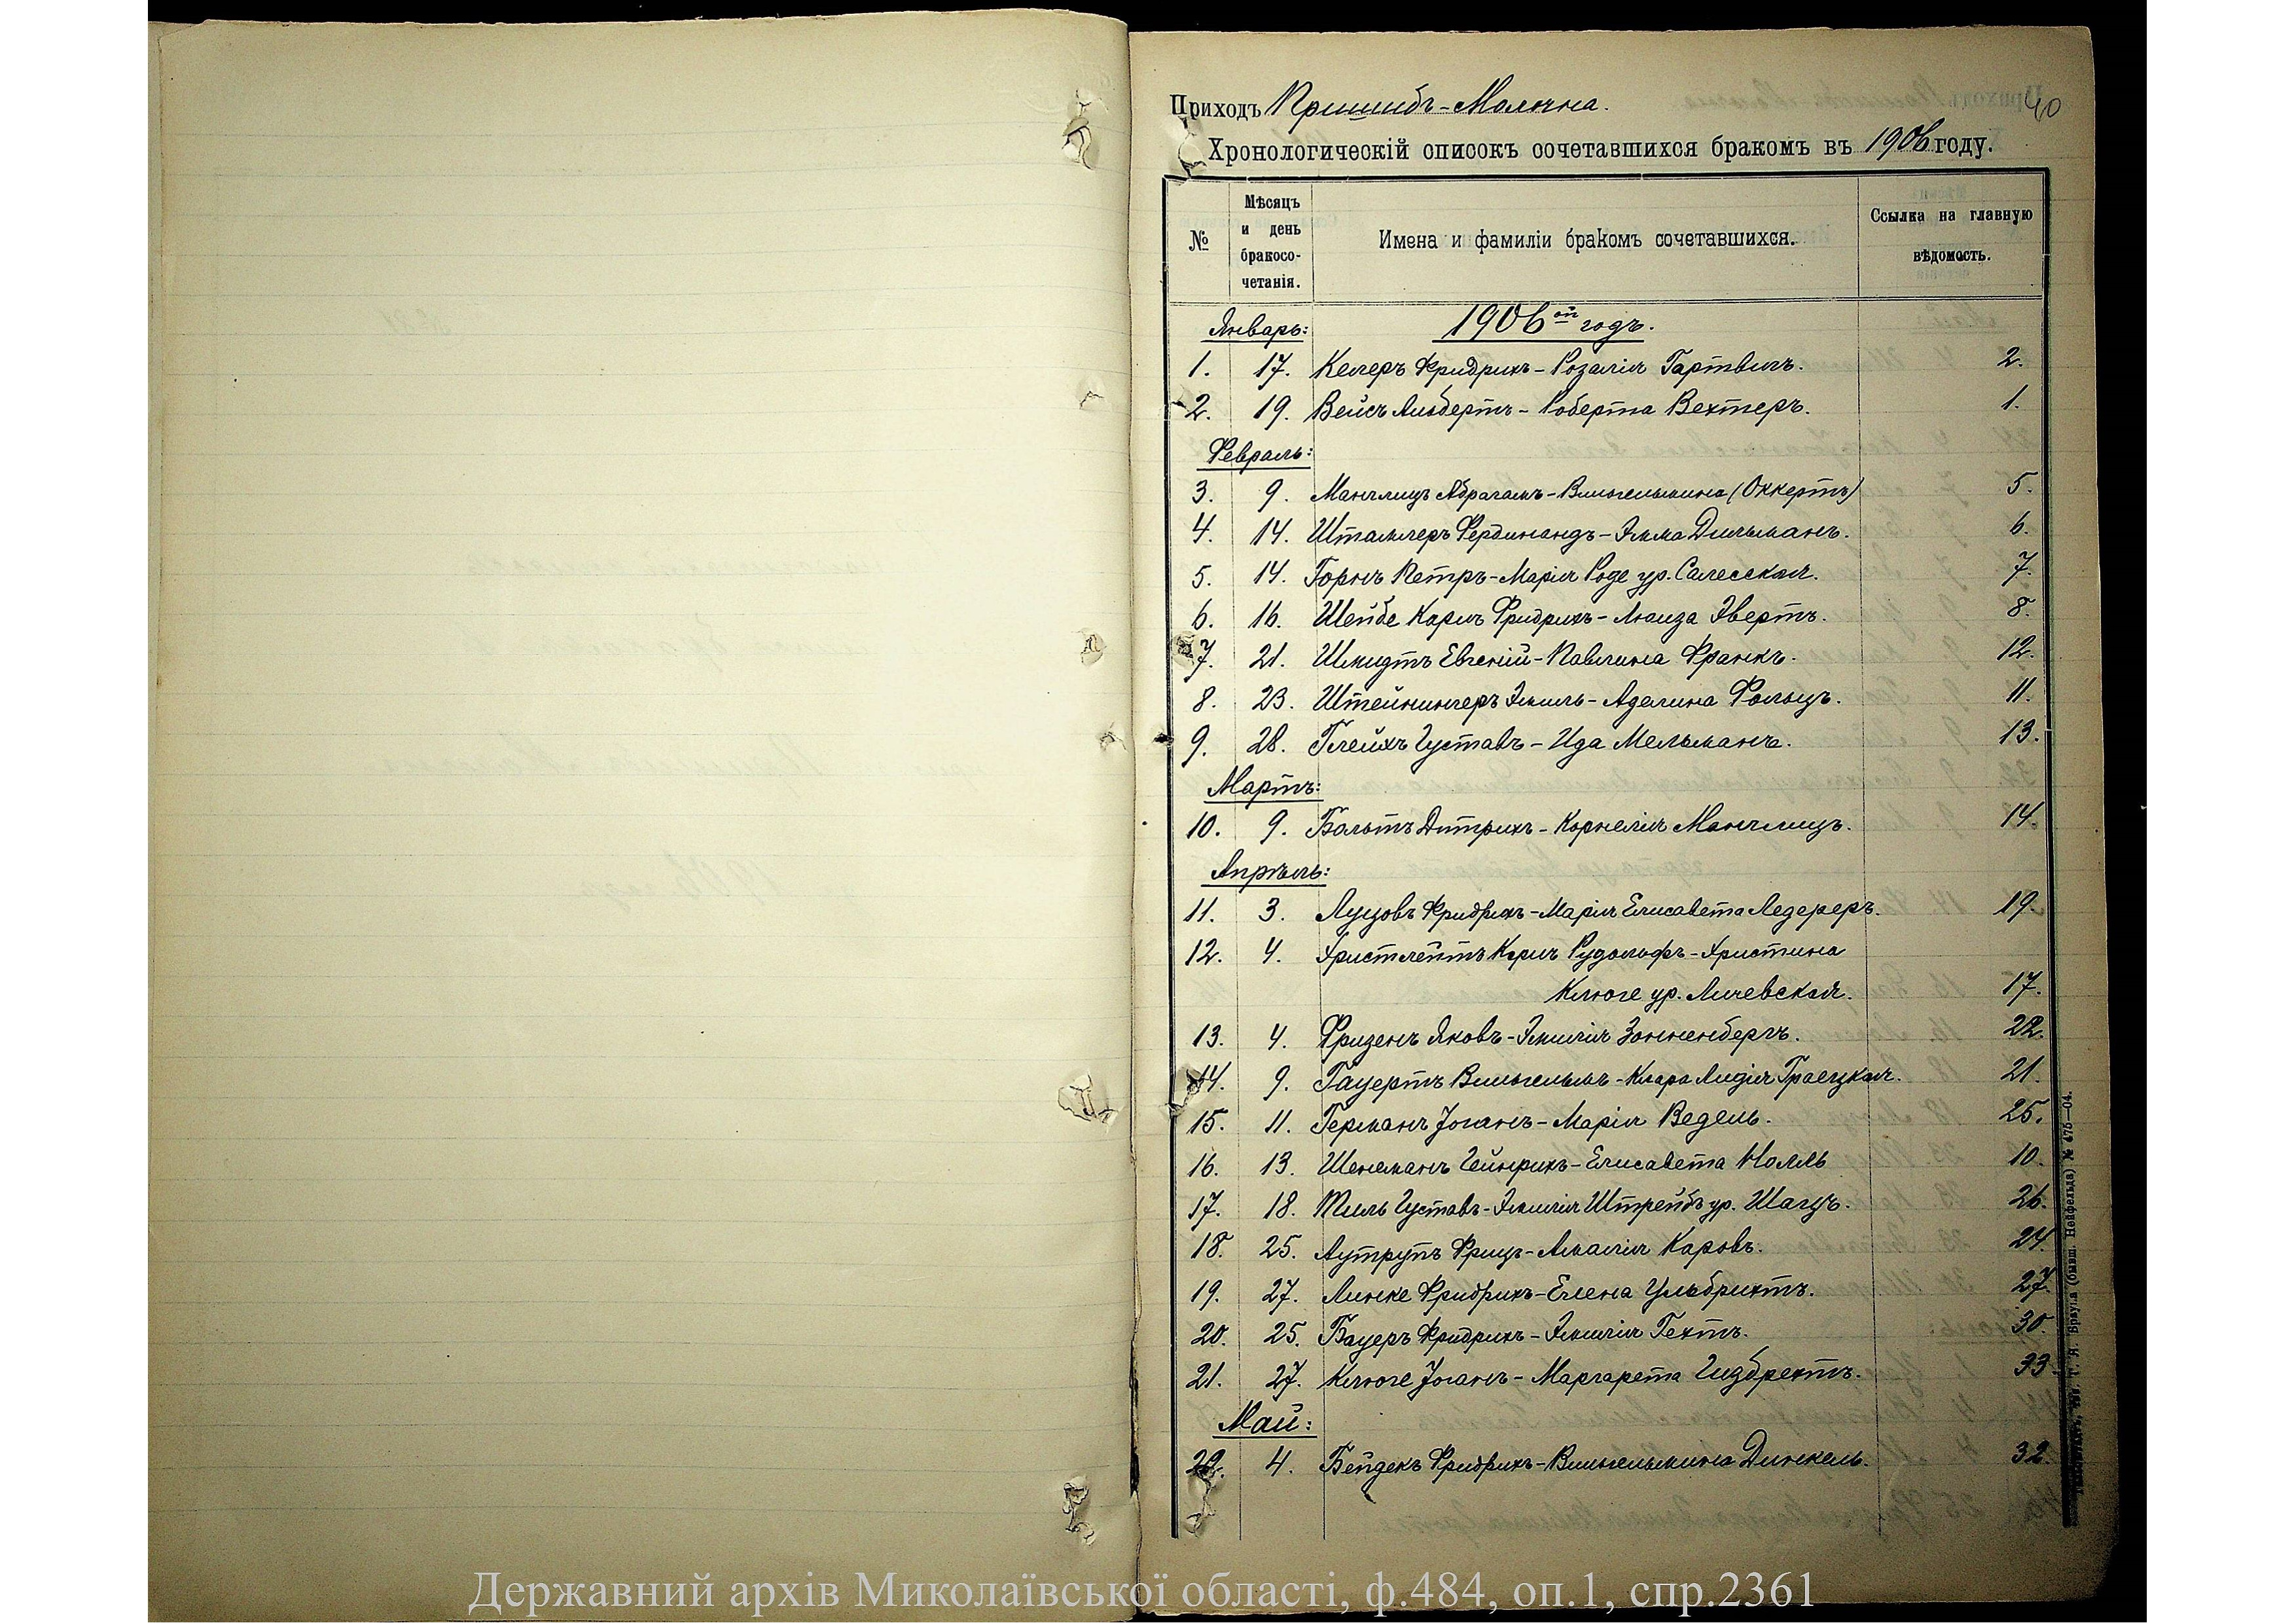 Приходъ Пришибъ-Молочна.
40
Хронологическій списокъ сочетавшихся бракомъ въ 1906 году.
№ Мѣсяцъ и день бракосо-четанія. Имена и фамиліи бракомъ сочетавшихся. Ссылка на главную вѣдомость.
Январь: 1906ой годъ.
1. 17. Келеръ Фридрихъ - Розалія Гартвигъ. 2.
2. 19. Вейсъ Альбертъ - Роберта Вехтеръ. 1.
Февраль:
3. 9. Манглицъ Абрагамъ - Вильгельмина (Оккертъ) 5.
4. 14. Штаммлеръ Фердинандъ - Эмма Дильманъ. 6.
5. 14. Горнъ Петръ - Марія Роде ур. Салесская. 7.
6. 16. Шейбе Карлъ Фридрихъ - Луиза Эвертъ. 8.
7. 21. Шмидтъ Евгеній - Павлина Франкъ. 12.
8. 23. Штейнингеръ Эмиль - Аделина Фольцъ. 11.
9. 28. Глейхъ Густавъ - Ида Мельманъ. 13.
Мартъ:
10. 9. Больтъ Дитрихъ - Корнелія Манглицъ. 14.
Апрѣль:
11. 3. Луцовъ Фридрихъ - Марія Елисавета Ледереръ. 19.
12. 4. Христлейтъ Карлъ Рудольфъ - Христина
Клюге ур. Личевская. 17.
13. 4. Фризенъ Яковъ - Эмилія Зонненбергъ. 22.
14. 9. Гауертъ Вильгельмъ - Клара Лидія Граецкая. 21.
15. 11. Германъ Іоганъ - Марія Ведель. 25.
16. 13. Шенеманъ Гейнрихъ - Елисавета Нолль 10.
17. 18. Тиль Густавъ - Эмилія Штрейбъ ур. Шацъ. 26.
18. 25. Аутрупъ Фрицъ - Амалія Каровъ. 24.
19. 27. Линке Фридрихъ - Елена Ульбрихтъ. 27.
20. 25. Бауеръ Фридрихъ - Эмилія Гехтъ. 30.
21. 27. Клюге Іоганъ - Маргарета Гизбрехтъ. 33.
Май:
22. 4. Бейдекъ Фридрихъ - Вильгельмина Динкель. 32.
Т. Я. Брауна (бывш. Нейфельда) № 475—04.
Державний архів Миколаївської області, ф.484, оп.1, спр.2361